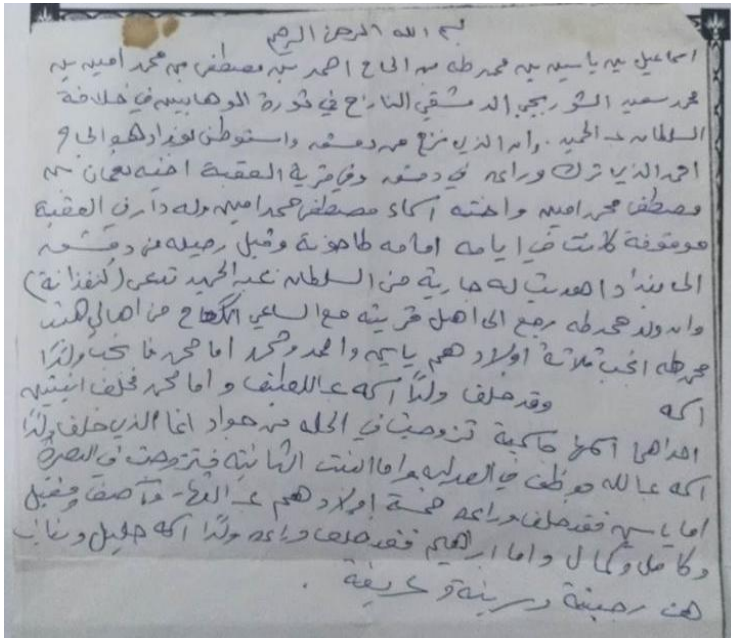 بسم الله الرحمن الرحيم
اسماعيل بن ياسين بن محمد طه بن الحاج احمد بن مصطفى بن محمد امين بن
محمد سعيد الشوربجي الدمشقي النازح في ثورة الوهابيين في خلافة
السلطان عبد الحميد . وان الذي نزح من دمشق واستوطن بغداد هو الحاج
احمد الذي ترك وراءه في دمشق وفي قرية العقبة اخيه نعمان بن
مصطفى محمد امين واخته اسماء مصطفى محمد امين وله دار في العقبة
موقوفة كانت في ايامه امامه طاحونة وقبل رحيله من دمشق
الى بغداد اهديت له جارية من السلطان عبد الحميد تدعى (كنفذانة)
وان ولد محمد طه رجع الى اهل قريته مع الساعي من اهالي هيت
محمد طه انجب ثلاثة اولاد هم ياسين واحمد ومحمد اما فانجب ولدًا
اسمه وقد خلف ولدًا اسمه عبد اللطيف واما محمد فخلف اثنتين
احداهما اسمها تزوجت في الحله من جواد انما الذي خلف ولدًا
اسمه عبد الله موظف في العدليه واما البنت الثانية فتزوجت في البصرة
اما ياسين فقد خلف وراءه خمسة اولاد هم عبد القهار وآصف ومقبل
وكامل وكمال واما ابراهيم فقد خلف وراءه ولدًا اسمه خليل وبنات
هن رجينة و وشريفة .